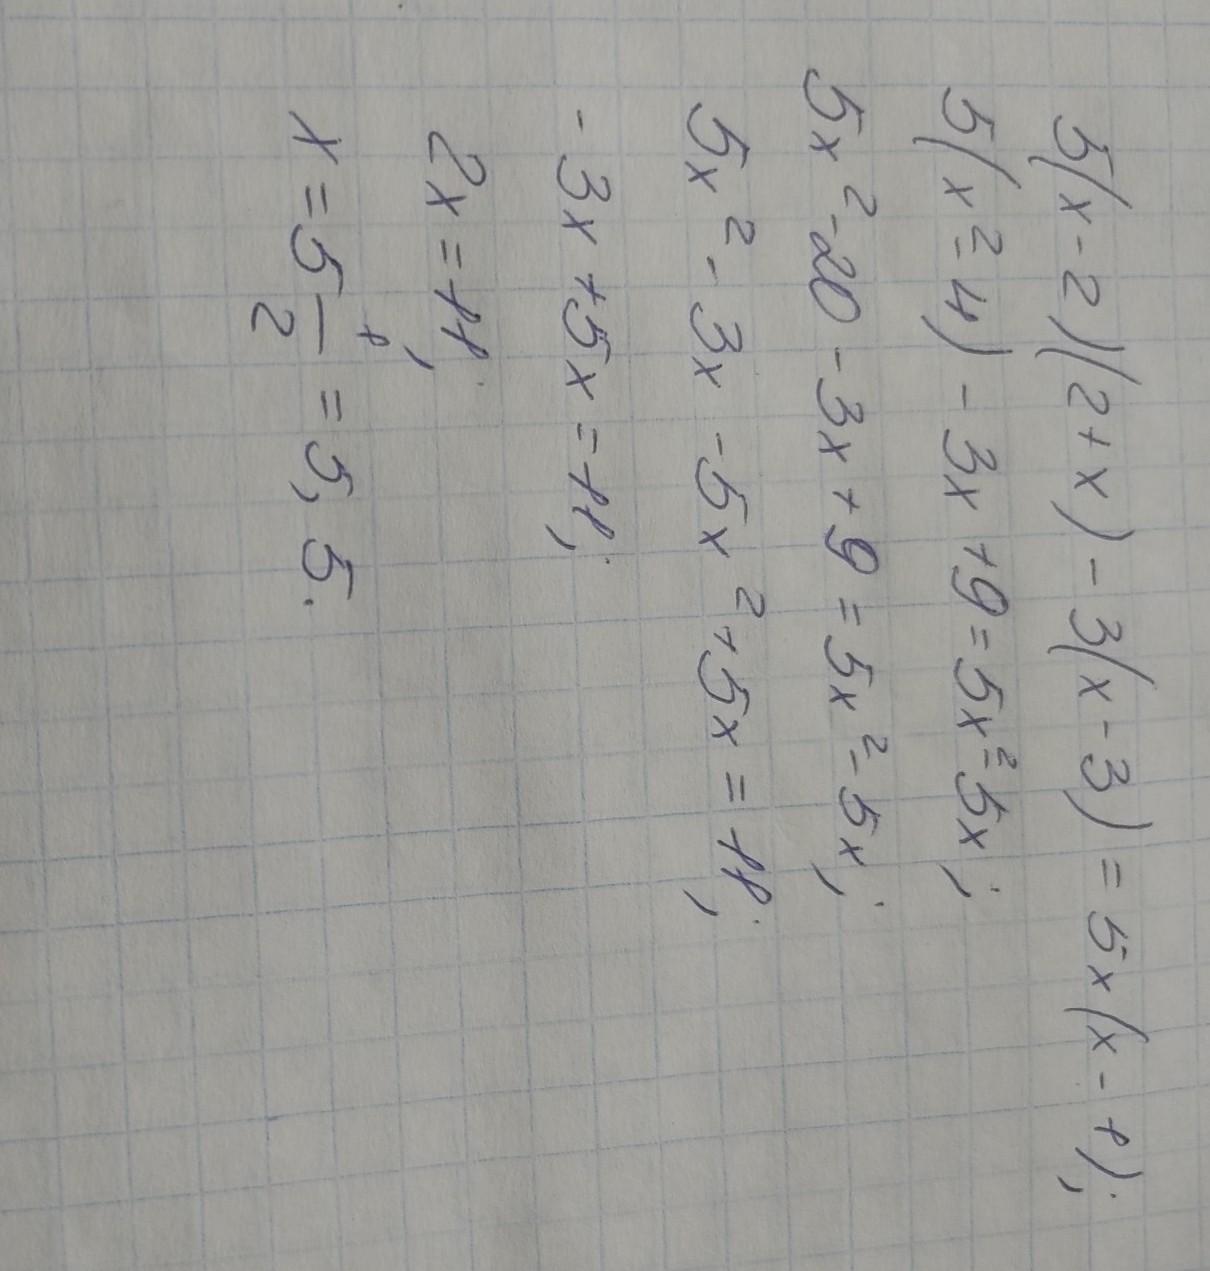 5(x-2)(2+x)-3(x-3)=5x(x-1);
5(x²-4)-3x+9=5x²-5x;
5x²-20-3x+9=5x²-5x;
5x²-3x-5x²+5x=11;
-3x+5x=11;
2x=11;
x=5 1/2=5,5.